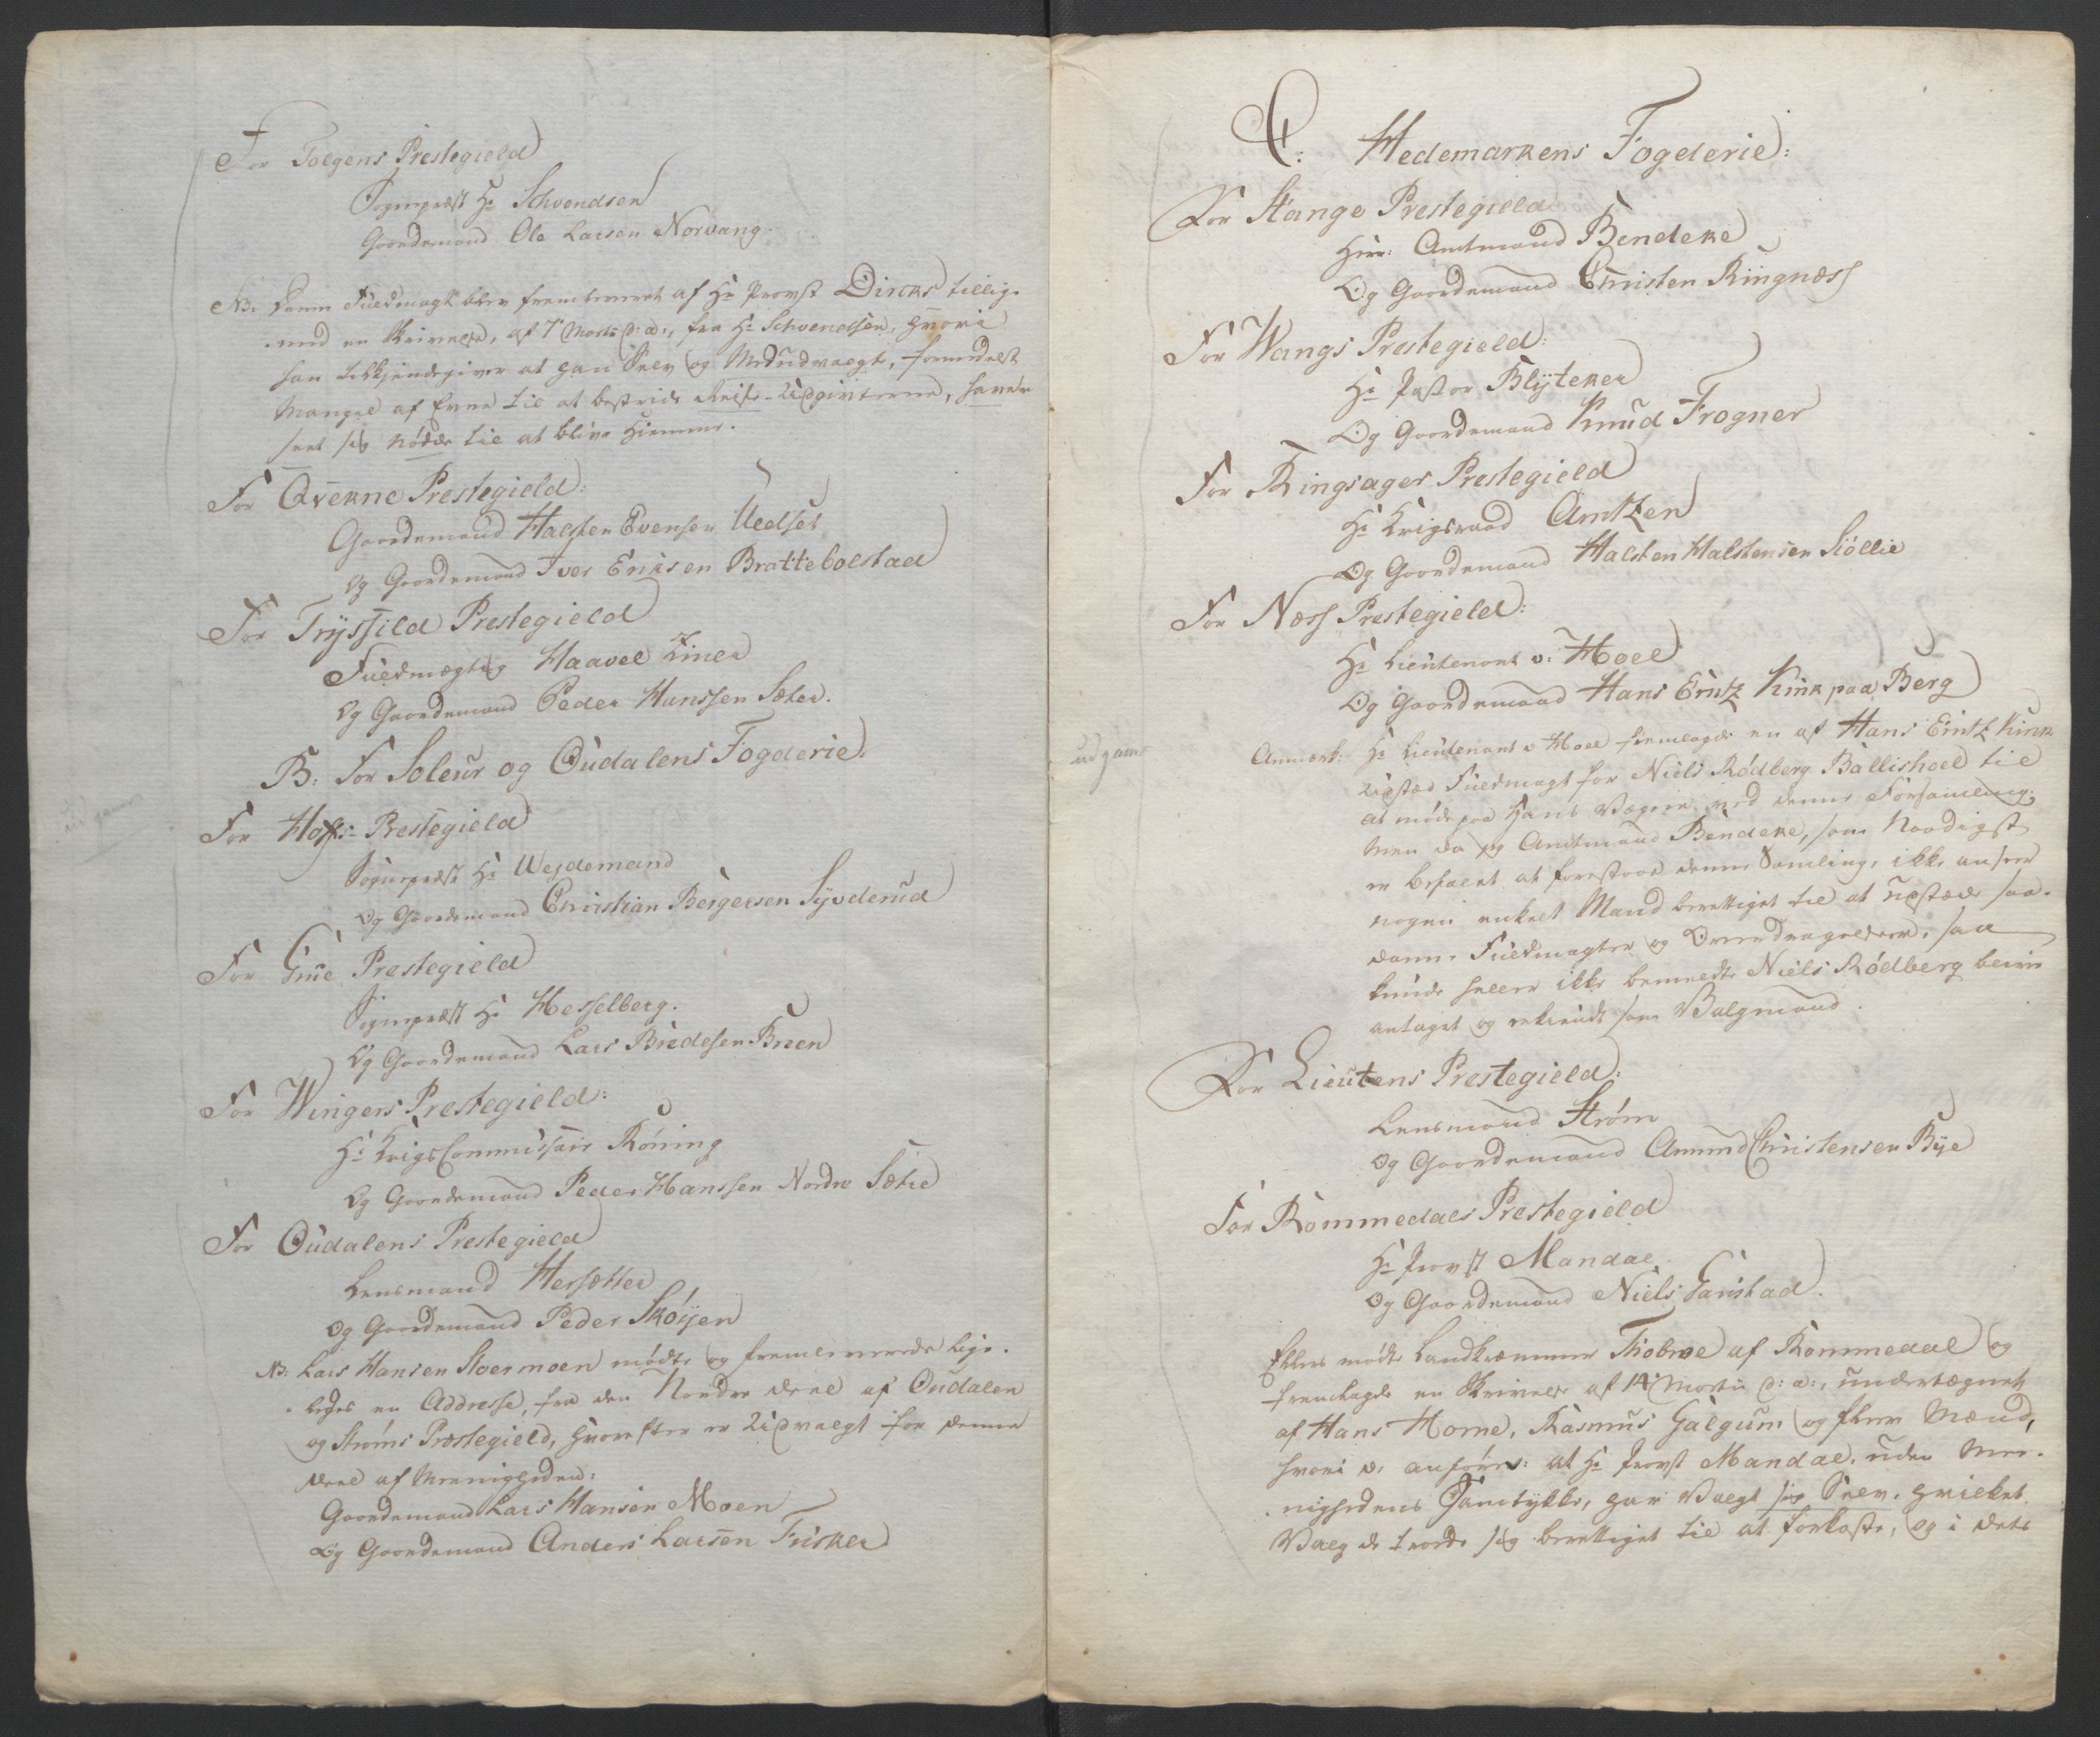 For Tolgens Prestegield
Sognepræst Hr Schvendsen
Gaardmand Ole Larsen Norvang.
NB: Denne Fuldmagt blev fremleveret af Hr Provst Dircks tillig-
med en Skrivelse, af 7de Martii d: a:, fra Hr Schvendsen, hvori
han tilkjendegiver at han Selv og Medudvalgt, formedelst
Mangel af Evne til at bestride Reise-Udgivterne, haver
seet sig nødde til at blive Hiemme.
For Qvekne Prestegield:
Gaardemand Halsten Evensen Uedset
Og Gaardemand Iver Ericsen Brattebolstad
For Tryssild Prestegield
Fuldmægtig Haavel Liner
Og Gaardemand Peder Hanssen Sæter.
B: For Soleur og Oudalens Fogderie.
For Hoffs- Prestegield
Sognepræst Hr Wejdemand
Og Gaardemand Christian Bergersen Syvderud
For Grue Prestegield
Sognepræst Hr Hesselberg.
Og Gaardemand Lars Bredesen Breen
For Wingers Prestegield:
Hr KrigsCommissair Røning
Og Gaardemand Peder Hanssen Nordre Sætre
For Oudalens Prestegield
Lensmand Hersætter
Og Gaardemand Peder Skøyen
NB: Lars Hansen Stoermoen mødte og fremleverede lige-
ledes en Addresse, fra den Nordre Deel af Oudalen
og Strøms Præstegield, hvorefter er Udvalgt for denne
Deel af Menigheden:
Gaardemand Lars Hansen Moen
Og Gaardemand Anders Larsen Fisker
C: Hedemarkens Fogderie:
For Stange Prestegield
Herr: Amtmand Bendeke
Og Gaardemand Christen Ringnæss
For Wangs Prestegield:
Hr Pastor Blyteker
Og Gaardemand Knud Frogner
For Ringsager Prestegield
Hr Krigsraad Arntzen
Og Gaardemand Halsten Halstensen Siøllie
For Næss Prestegield:
Hr Lieutenant v: Hoel
Og Gaardemand Hans Erntz Kink paa Berg
Anmærk: Hr Lieutenant v Hoel fremlagde en af Hans Erntz Kink
udstæd Fuldmagt for Niels Rødberg Ballishoel til
at møde paa Hans Vegne ved denne Forsamling.
Men da jeg Amtmand Bendeke, som Naadigst
er befalet at forestaae denne Samling, ikke anseer
nogen enkelt Mand berettiget til at udstæde saa-
danne Fuldmagter og Overdragelser, saa
kunde heller ikke bemeldte Niels Rødberg blive
antaget og erkiendt som Valgmand.
For Lieutens Prestegield:
Lensmand Strøm
Og Gaardemand Amund Christensen Bye
For Rommedals Prestegield
Hr Provst Mandal
Og Gaardemand Niels Gaustad.
Ellers mødte Landkræmmer Frobøe af Rommedal og
fremlagde en Skrivelse af 14de Martii d: a:, undertegnet
af Hans Horne, Rasmus Galgum og flere Mænd,
hvori de anfører: at Hr Provst Mandal, uden Me-
nighedens Samtykke, har Valgt sig Selv, hvilket
Valg de troede sig berettiget til at forkaste, og i dets